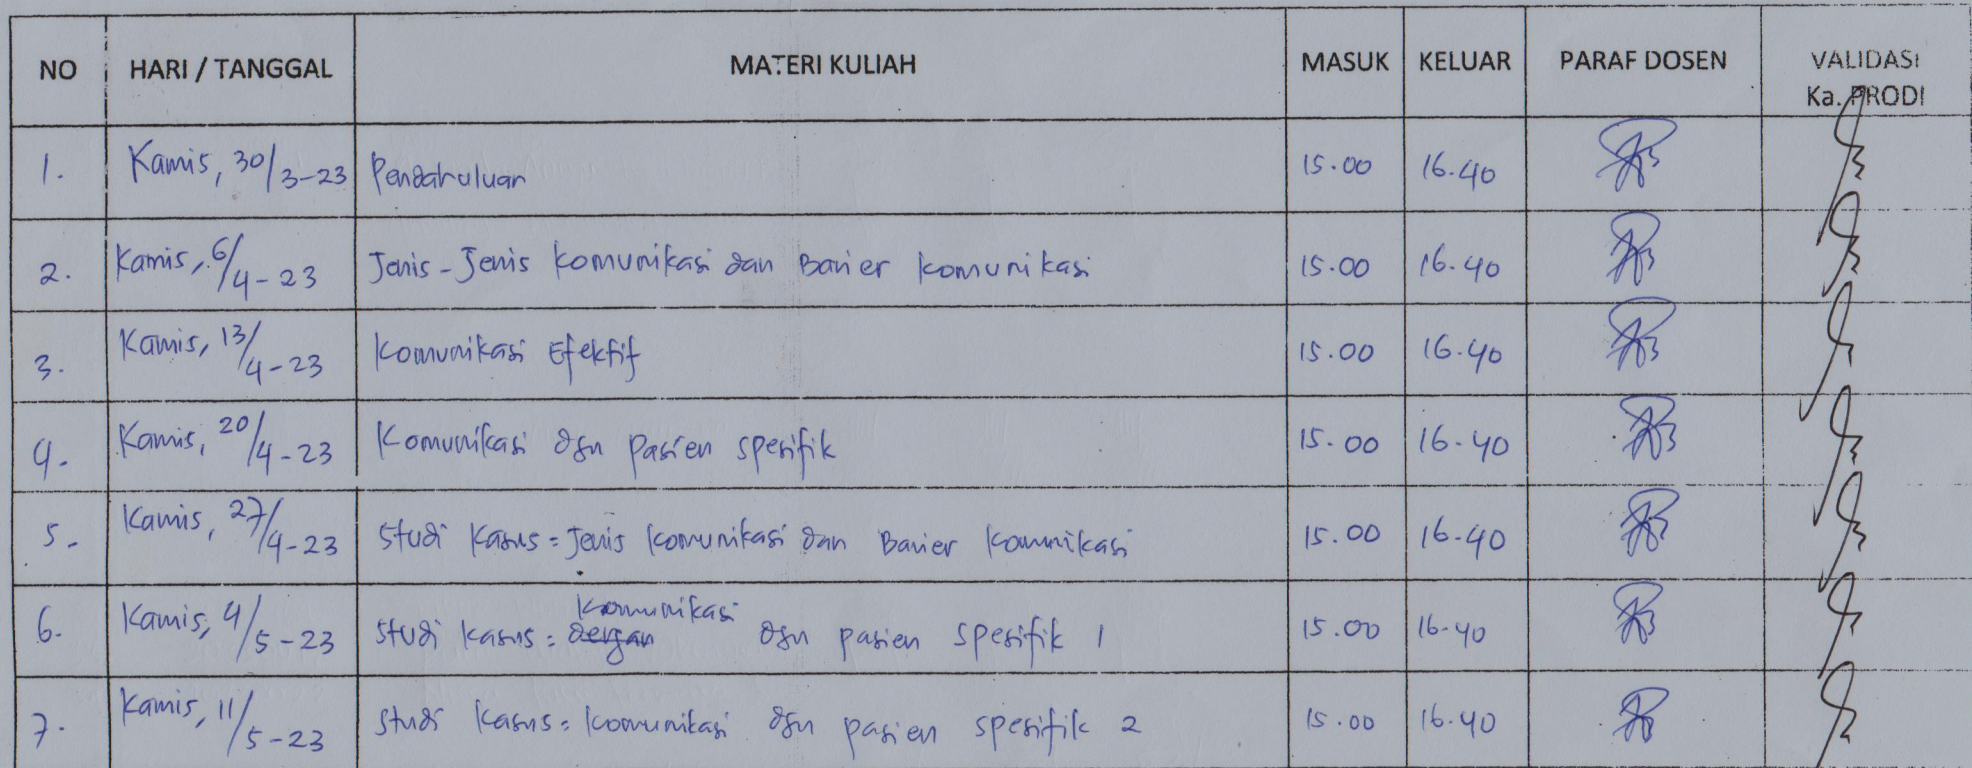 NO HARI / TANGGAL MATERI KULIAH MASUK KELUAR PARAF DOSEN VALIDASI
Ka. PRODI
1. Kamis, 30/3-23 Pendahuluan 15.00 16.40
2. Kamis, 6/4-23 Jenis-Jenis komunikasi dan Barier komunikasi 15.00 16.40
3. Kamis, 13/4-23 Komunikasi Efektif 15.00 16.40
4. Kamis, 20/4-23 Komunikasi dgn pasien spesifik 15.00 16.40
5. Kamis, 27/4-23 Studi Kasus = Jenis komunikasi dan Barier komunikasi 15.00 16.40
komunikasi
6. Kamis, 4/5-23 Studi kasus = dengan dgn pasien spesifik 1 15.00 16.40
7. Kamis, 11/5-23 Studi kasus = komunikasi dgn pasien spesifik 2 15.00 16.40